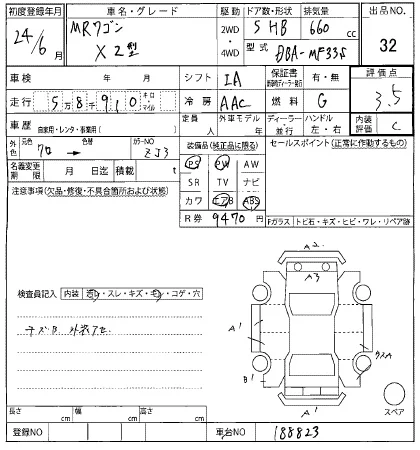 初度登録年月 車名・グレード 駆動 ドア数・形状 排気量 出品NO.
24/6月 MRワゴン X 2型 2WD ・ 4WD 5 HB 660 cc 32
型式 DBA-MF33S
車検 年 月 シフト IA 保証書 有・無 評価点
走行 5万8千910 キロ・マイル 冷房 AAC 燃料 G 3.5
車歴 自家用・レンタ・事業用( ) 定員 人 外車モデル 年 ディーラー・並行 ハンドル 左・右 内装評価 C
外色 元色 クロ → 色替 カラーNO ZJ3 装備品(純正品に限る) セールスポイント(正常に作動するもの)
名義変更期限 月 日迄 積載 t PS PW AW
注意事項(欠品・修復・不具合箇所および状態) SR TV ナビ
カワ エアB ABS
R券 9470円 Fガラス トビ石・キズ・ヒビ・ワレ・リペア跡
A2
A3
検査員記入 内装 汚れ・スレ・キズ・キレ・コゲ・穴
A1
ウスA
B1
A1
スペア
長さ cm 幅 cm 高さ cm
登録NO 車台NO 188823